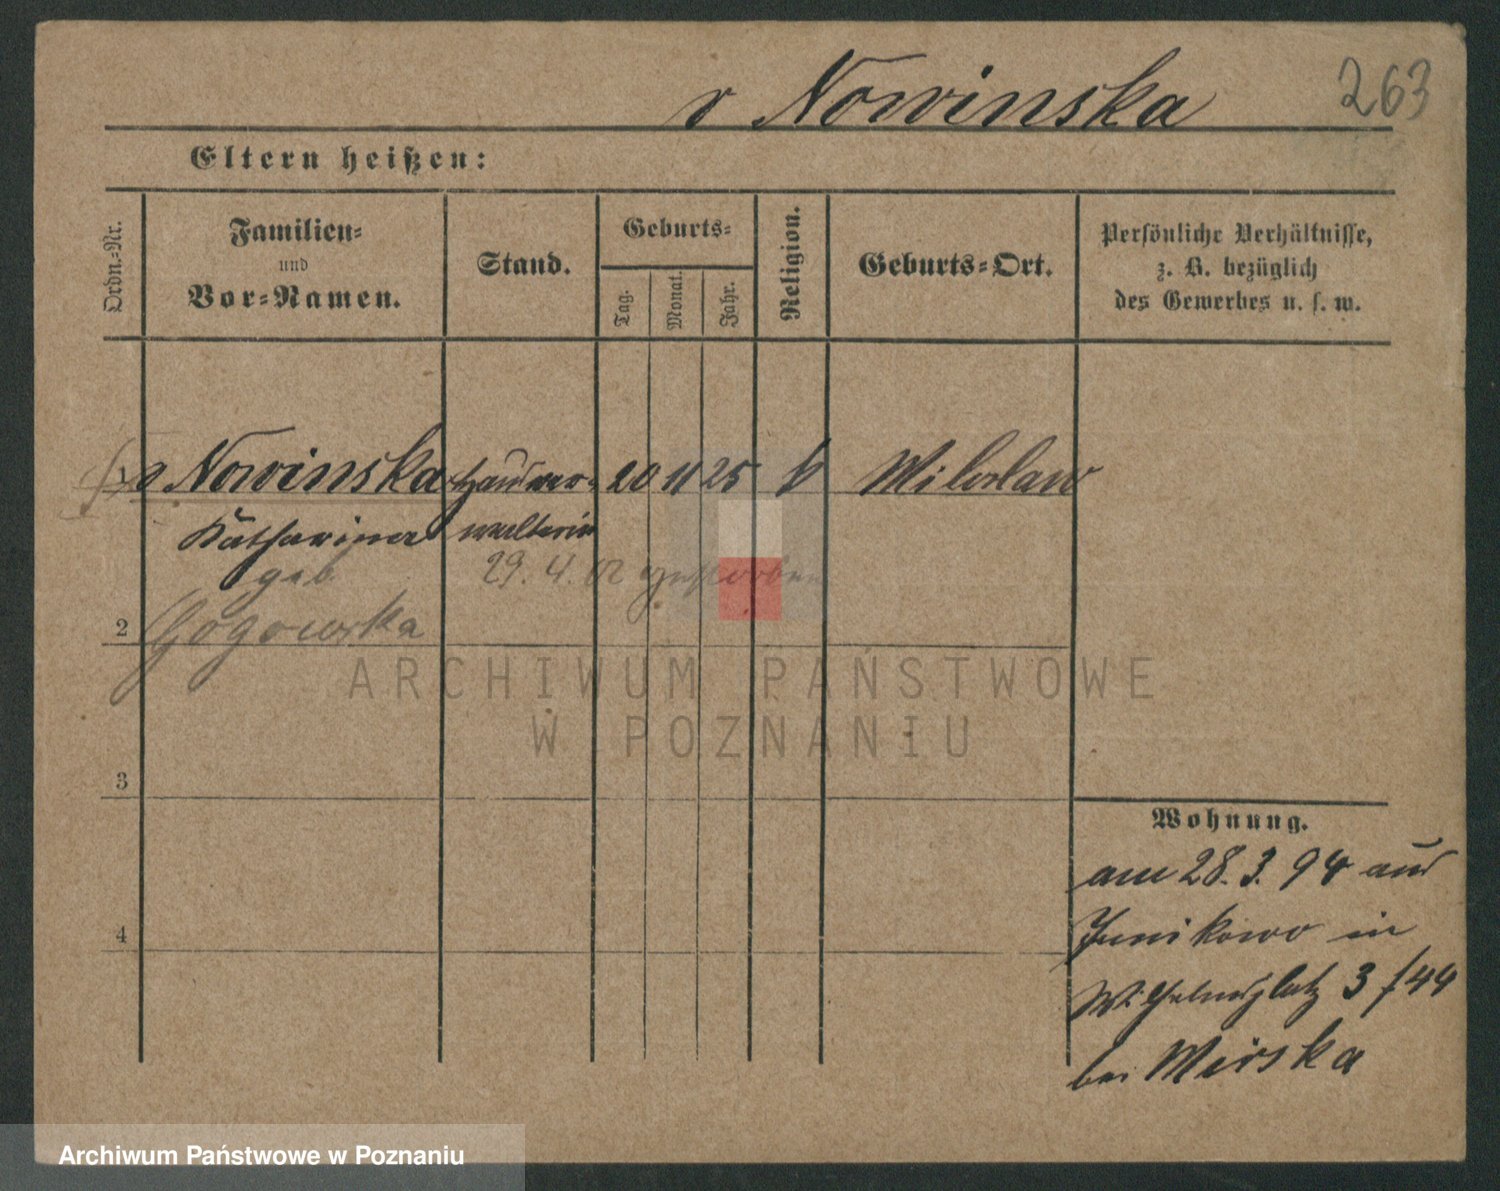 v Nowinska
263
Eltern heißen:
Ordn.-Nr.
Familien-
und
Vor-Namen.
Stand.
Geburts-
Tag.
Monat.
Jahr.
Religion.
Geburts-Ort.
Persönliche Verhältnisse,
z. B. bezüglich
des Gewerbes u. s. w.
v Nowinska Hausver- 20 11 25 k Miloslaw
Katharina walterin
geb. 29. 4. 02 gestorben
2 Gogowska
ARCHIWUM PAŃSTWOWE
W POZNANIU
3
Wohnung.
am 28. 3. 94 aus
4
Junikowo in
Wilhelmsplatz 3 f 44
bei Mirska
Archiwum Państwowe w Poznaniu